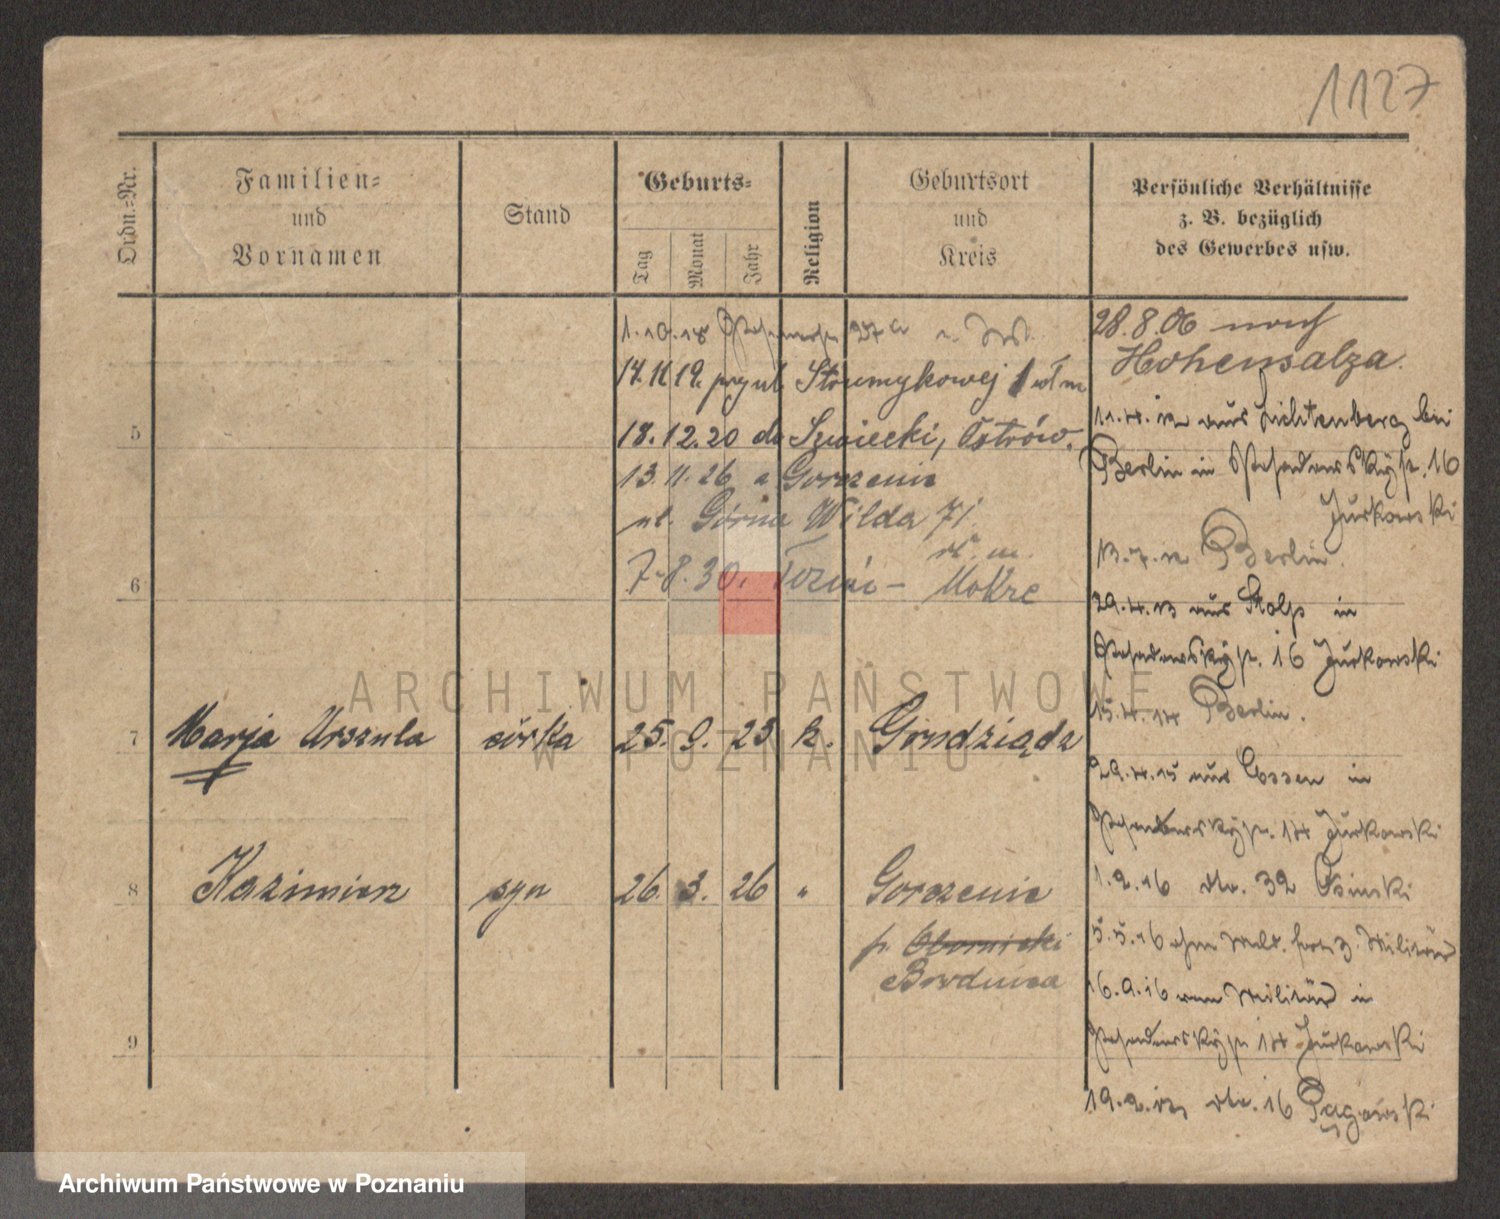 1127
Ordn.=Nr.
Familien=
und
Vornamen
Stand
Geburts=
Tag
Monat
Jahr
Religion
Geburtsort
und
Kreis
Persönliche Verhältnisse
z. B. bezüglich
des Gewerbes usw.
1.10.18
14.11.19. przy ul. Strumykowej 1 wł m
5
18.12.20 do Szwiecki, Ostrów.
13.11.26 z Gorczenic
ul. Górna Wilda 71
7.8.30. Toruń –
Mokre
6
7 Marja Urszula córka 25. 9. 23 k. Grudziądz
8 Kazimierz syn 26. 3. 26 " Gorczenic
p. Obornicki
Brodnica
9
28.8.06 nach
Hohensalza.
11.4.12 aus Lichtenberg bei
Berlin in 16
Jurkowski
13.7.12 Berlin.
29.4.13 aus Stolp in
16 Jurkowski
15.4.14 Berlin.
29.4.15 aus Essen in
14 Jurkowski
1.2.16 dto. 32
5.5.16 Militär
16.9.16 vom Militär in
14 Jurkowski
19.2. dto. 16
ARCHIWUM PAŃSTWOWE
W POZNANIU
Archiwum Państwowe w Poznaniu